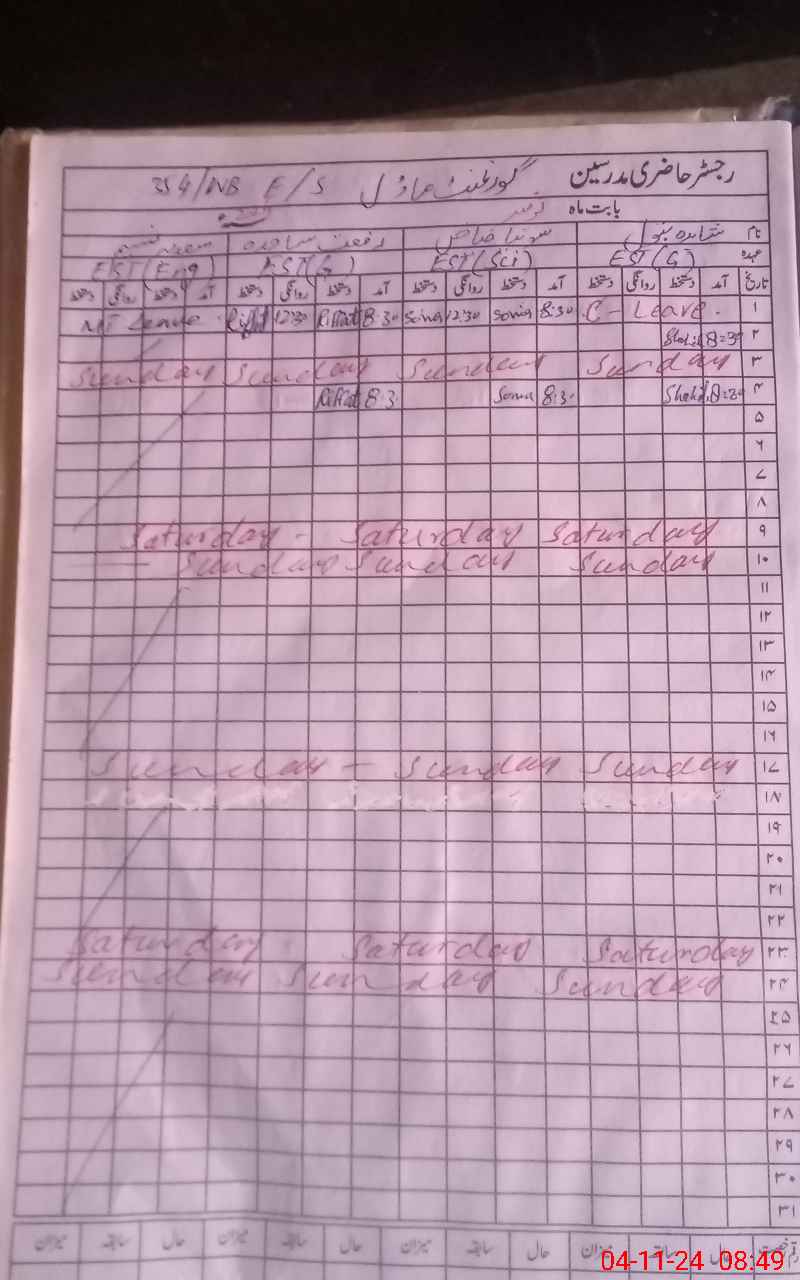 رجسٹر حاضری مدرسین گورنمنٹ ماڈل E/S 354/NB
بابت ماہ نومبر
نام شاہدہ بتول سونیا ریفعت ساجدہ
عہدہ EST(G) EST(Sci) EST(G) EST(Eng)
تاریخ آمد دستخط روانگی دستخط آمد دستخط روانگی دستخط آمد دستخط روانگی دستخط آمد دستخط روانگی دستخط
۱ C-Leave. 8:30 Sonia 12:30 Sonia 8:30 Riffat 12:30 Riffat Leave
۲
۳ Sunday Sunday Sunday Sunday
۴ 8:30 Sonia 8:3 Riffat
۵
۶
۷
۸
۹ Saturday - Saturday Saturday
۱۰ Sunday Sunday Sunday
۱۱
۱۲
۱۳
۱۴
۱۵
۱۶
۱۷ Sunday - Sunday Sunday
۱۸
۱۹
۲۰
۲۱
۲۲
۲۳ Saturday Saturday Saturday
۲۴ Sunday Sunday Sunday
۲۵
۲۶
۲۷
۲۸
۲۹
۳۰
۳۱
رقم رخصت حال سابقہ میزان حال سابقہ میزان حال سابقہ میزان حال سابقہ میزان
04-11-24 08:49